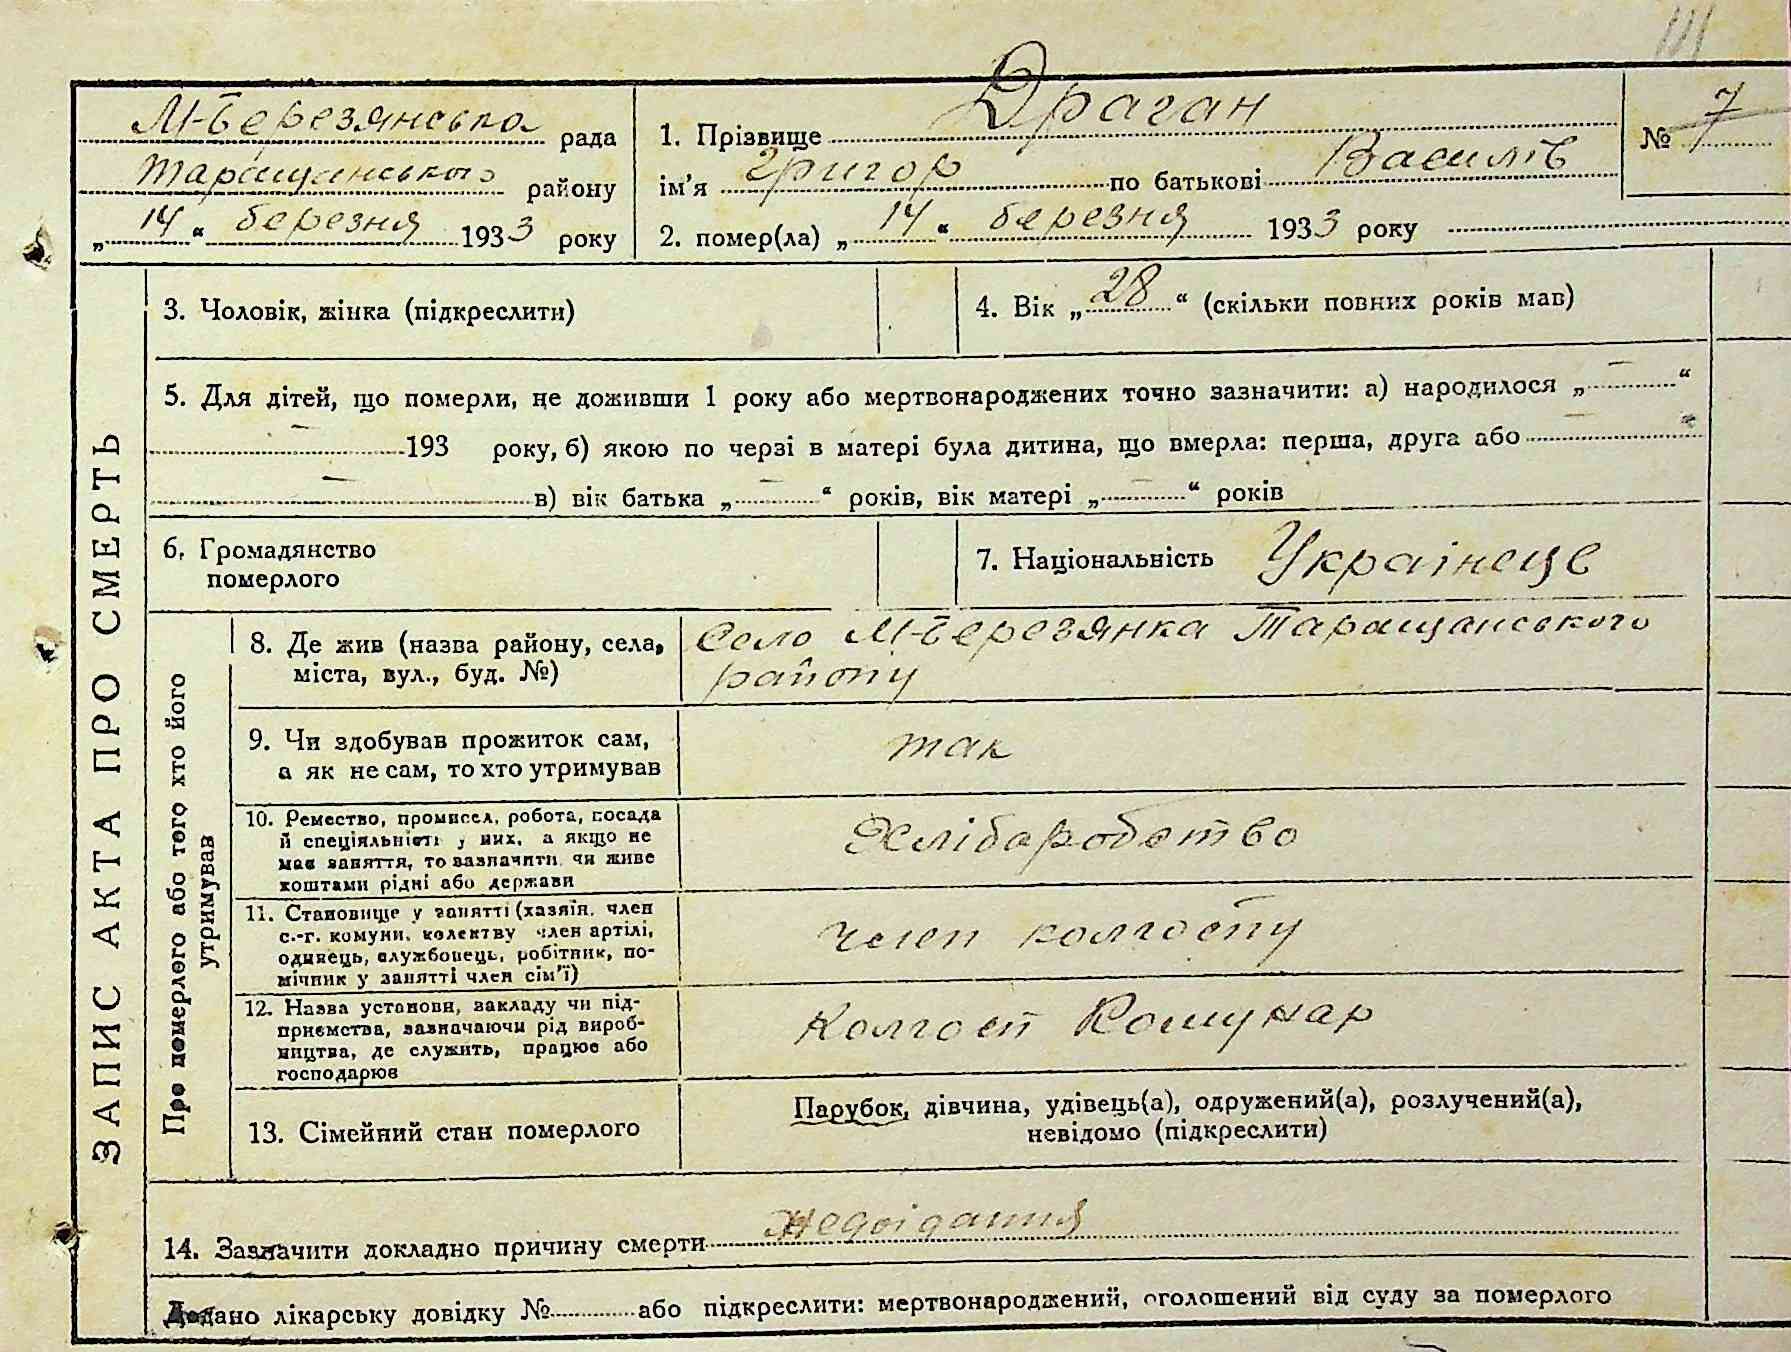 М-Березянська рада
Таращанського району
„14“ березня 1933 року
1. Прізвище Драган
ім'я Григор по батькові Василів
№ 7
2. помер(ла) „14“ березня 1933 року
ЗАПИС АКТА ПРО СМЕРТЬ
3. Чоловік, жінка (підкреслити)
4. Вік „28“ (скільки повних років мав)
5. Для дітей, що померли, не доживши 1 року або мертвонароджених точно зазначити: а) народилося „ — “
— 193 року, б) якою по черзі в матері була дитина, що вмерла: перша, друга або —
— в) вік батька „ — “ років, вік матері „ — “ років
6. Громадянство
померлого
7. Національність Українець
Про померлого або того хто його
утримував
8. Де жив (назва району, села,
міста, вул., буд. №)
Село М-Березянка Таращанського
району
9. Чи здобував прожиток сам,
а як не сам, то хто утримував
так
10. Ремество, промисел, робота, посада
й спеціяльність у них, а якщо не
має заняття, то зазначити чи живе
коштами рідні або держави
Хліборобство
11. Становище у занятті (хазяїн, член
с.-г. комуни, колективу член артілі,
одинець, службовець, робітник, по-
мічник у занятті член сім'ї)
член колгоспу
12. Назва установи, закладу чи під-
приємства, зазначаючи рід вироб-
ництва, де служить, працює або
господарює
Колгосп Комунар
13. Сімейний стан померлого
Парубок, дівчина, удівець(а), одружений(а), розлучений(а),
невідомо (підкреслити)
14. Зазначити докладно причину смерти недоїдання
Додано лікарську довідку № або підкреслити: мертвонароджений, оголошений від суду за померлого